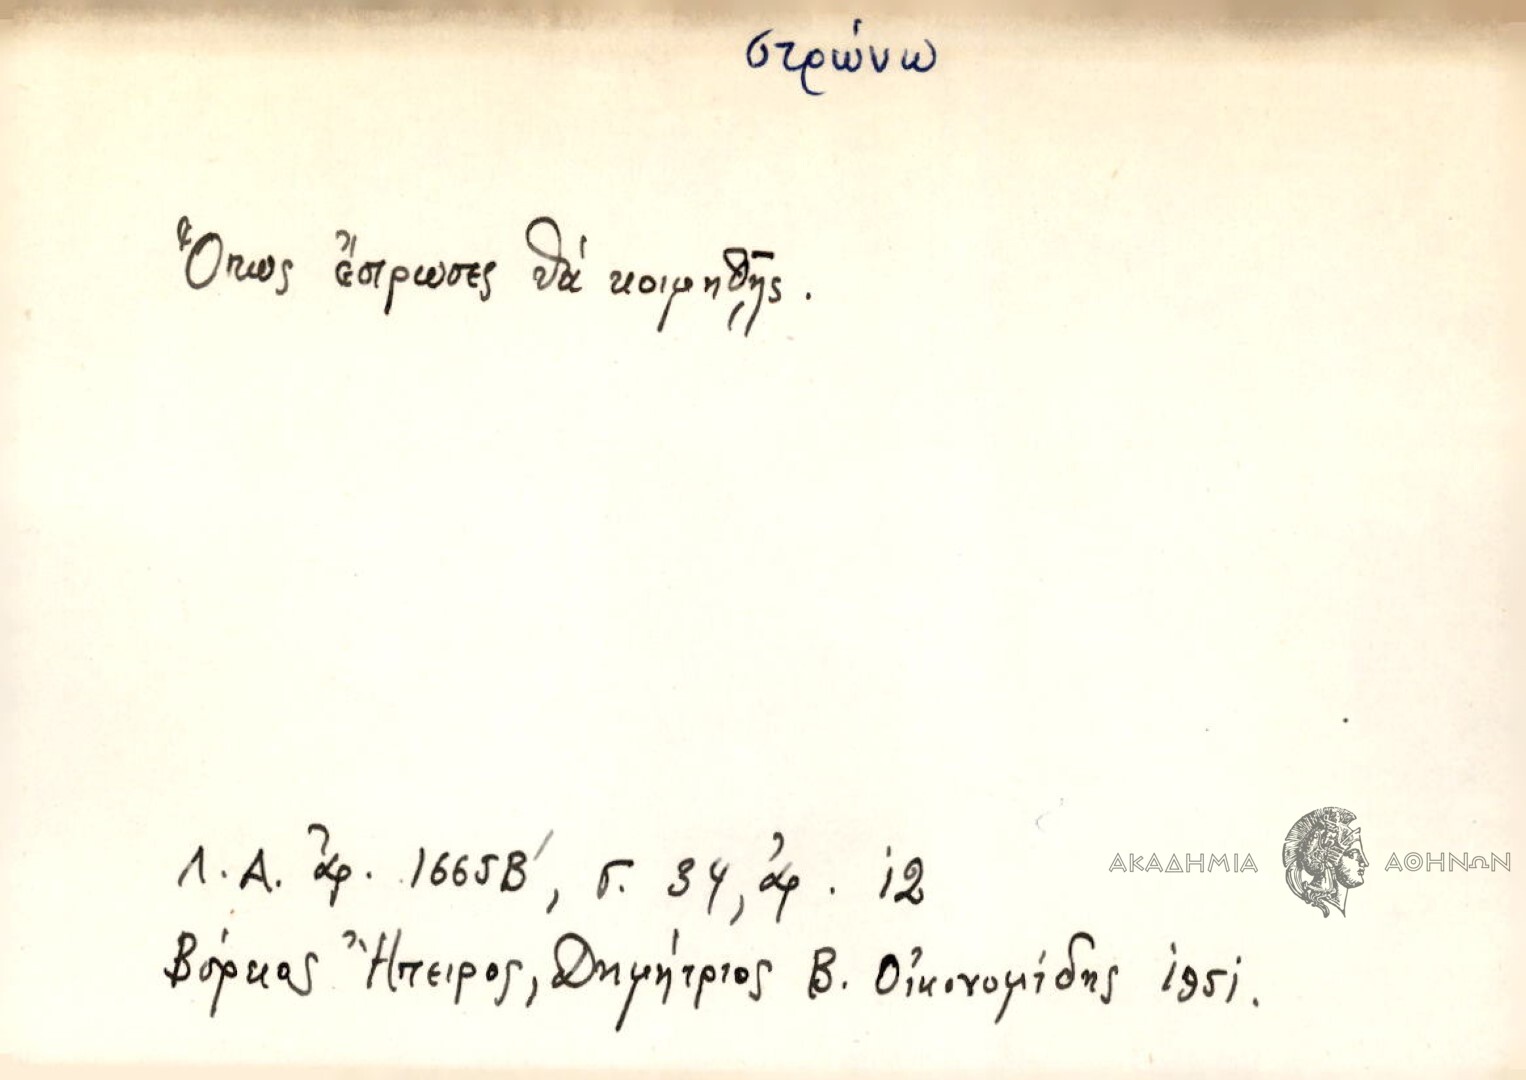 στρώνω
Ὅπως ἔστρωσες θά κοιμηθῇς.
Λ. Α. ἀρ. 1665Β', σ. 34, ἀρ. 12
ΑΚΑΔΗΜΙΑ ΑΘΗΝΩΝ
Βόρειος Ἤπειρος, Δημήτριος Β. Οἰκονομίδης 1951.